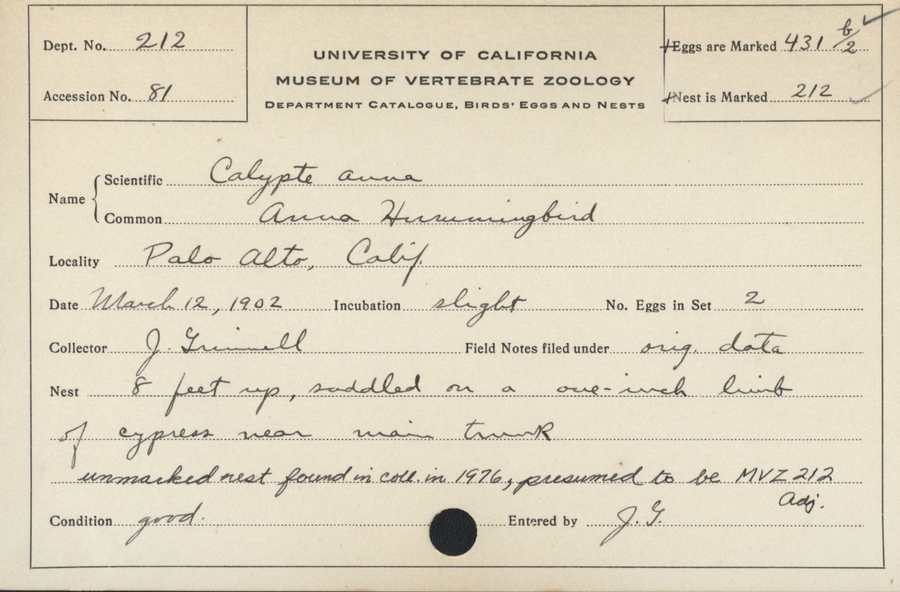 Dept. No. 212
Accession No. 81
UNIVERSITY OF CALIFORNIA
MUSEUM OF VERTEBRATE ZOOLOGY
DEPARTMENT CATALOGUE, BIRDS' EGGS AND NESTS
Eggs are Marked 431 b/2
Nest is Marked 212
Name { Scientific Calypte anna
Common Anna Hummingbird
Locality Palo Alto, Calif.
Date March 12, 1902 Incubation slight No. Eggs in Set 2
Collector J. Grinnell Field Notes filed under orig. data
Nest 8 feet up, saddled on a one-inch limb
of cypress near main trunk
unmarked nest found in coll. in 1976, presumed to be MVZ 212
Adj.
Condition good. Entered by J. G.